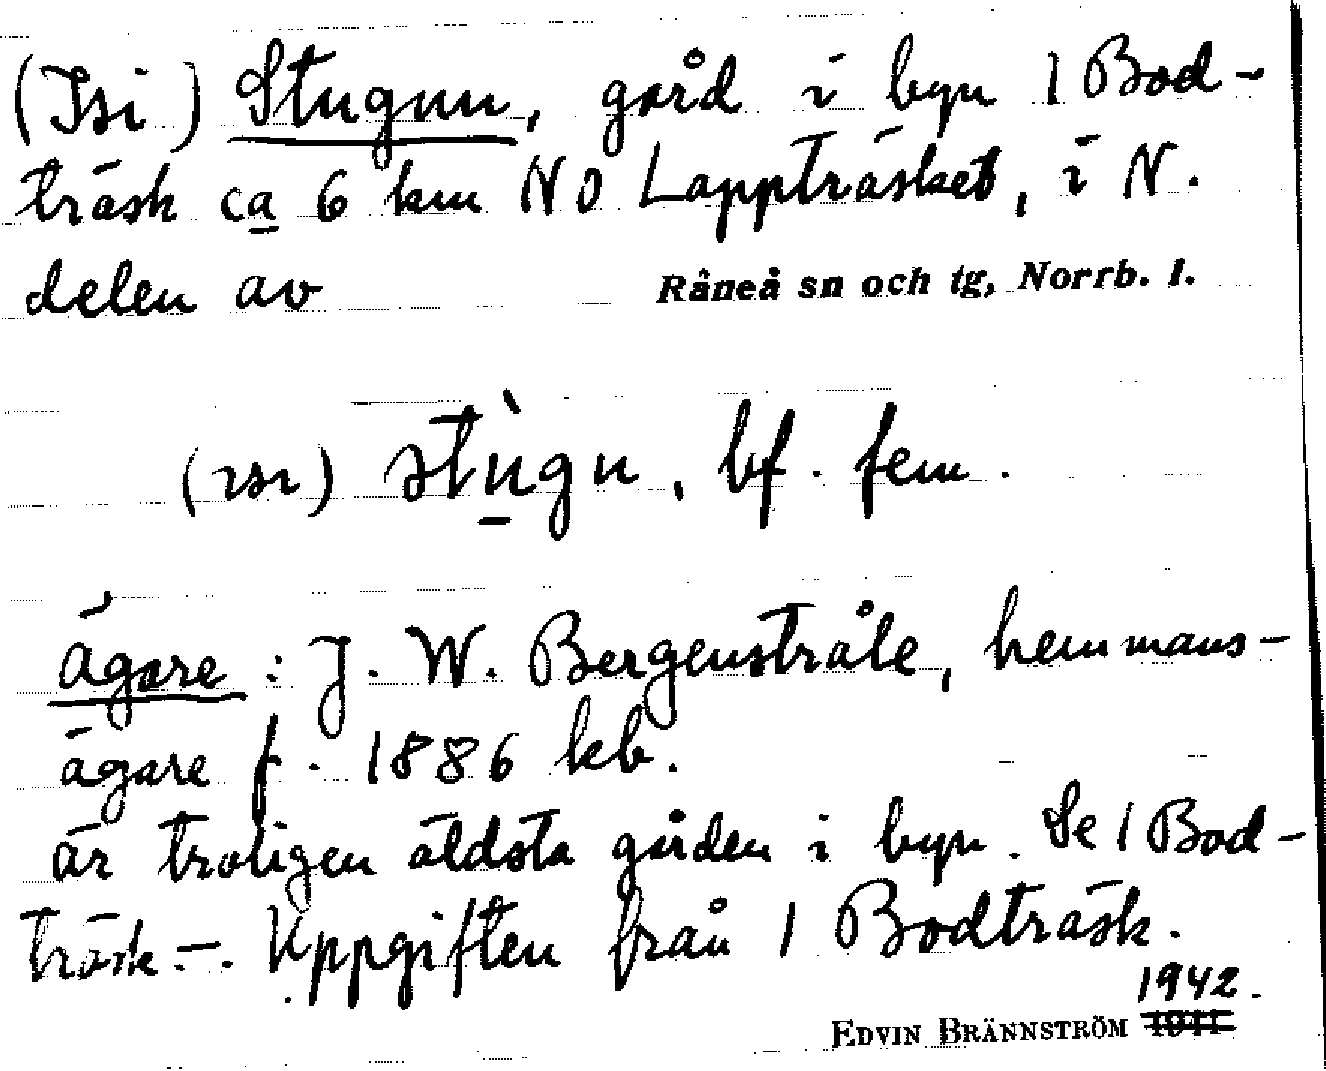 (Isi) Stugun, gård i byn 1 Bod-
träsk ca 6 km NO Lappträsket, i N.
delen av Råneå sn och tg, Norrb. l.
(ısı) stùgu, bf. fem.
ägare : J. W. Bergenstråle, hemmans-
ägare f. 1886 kb.
är troligen äldsta gården i byn. Se 1 Bod-
träsk. -. Uppgiften från 1 Bodträsk.
1942.
EDVIN BRÄNNSTRÖM 1941